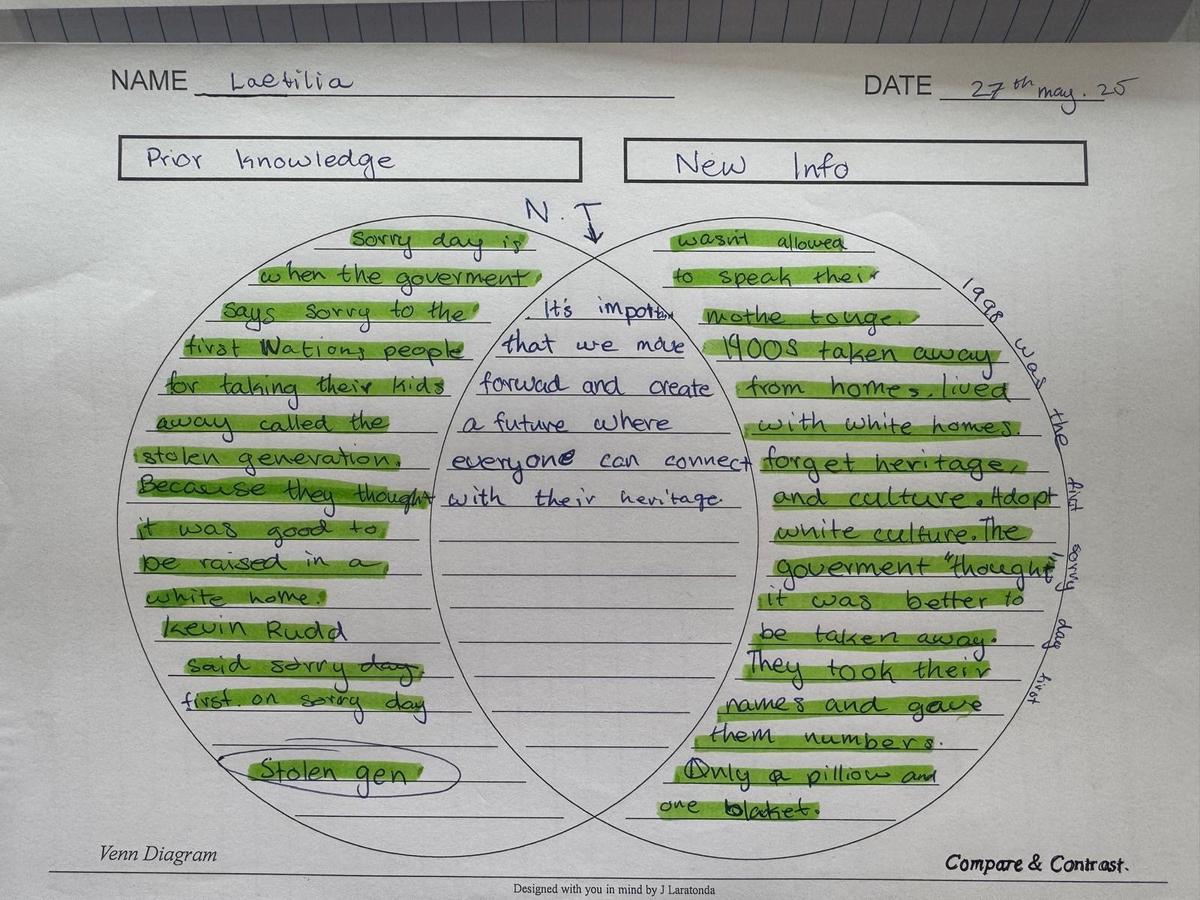 NAME Laetilia
DATE 27th may. 25
Prior knowledge
New Info
N.T
Sorry day is
when the goverment
says sorry to the
first Nations people
for taking their kids
away called the
stolen generation.
Because they thought
it was good to
be raised in a
white home.
Kevin Rudd
said sorry day.
first on sorry day
Stolen gen
It's importn
that we move
forwad and create
a future where
everyone can connect
with their heritage.
wasn't allowed
to speak their
mothe touge.
1900s taken away
from homes. lived
with white homes.
forget heritage,
and culture. Adopt
white culture. The
goverment "thought"
it was better to
be taken away.
They took their
names and gave
them numbers.
Only a pilliow and
one blaket.
1998 was the first sorry day first
Venn Diagram
Compare & Contrast.
Designed with you in mind by J Laratonda